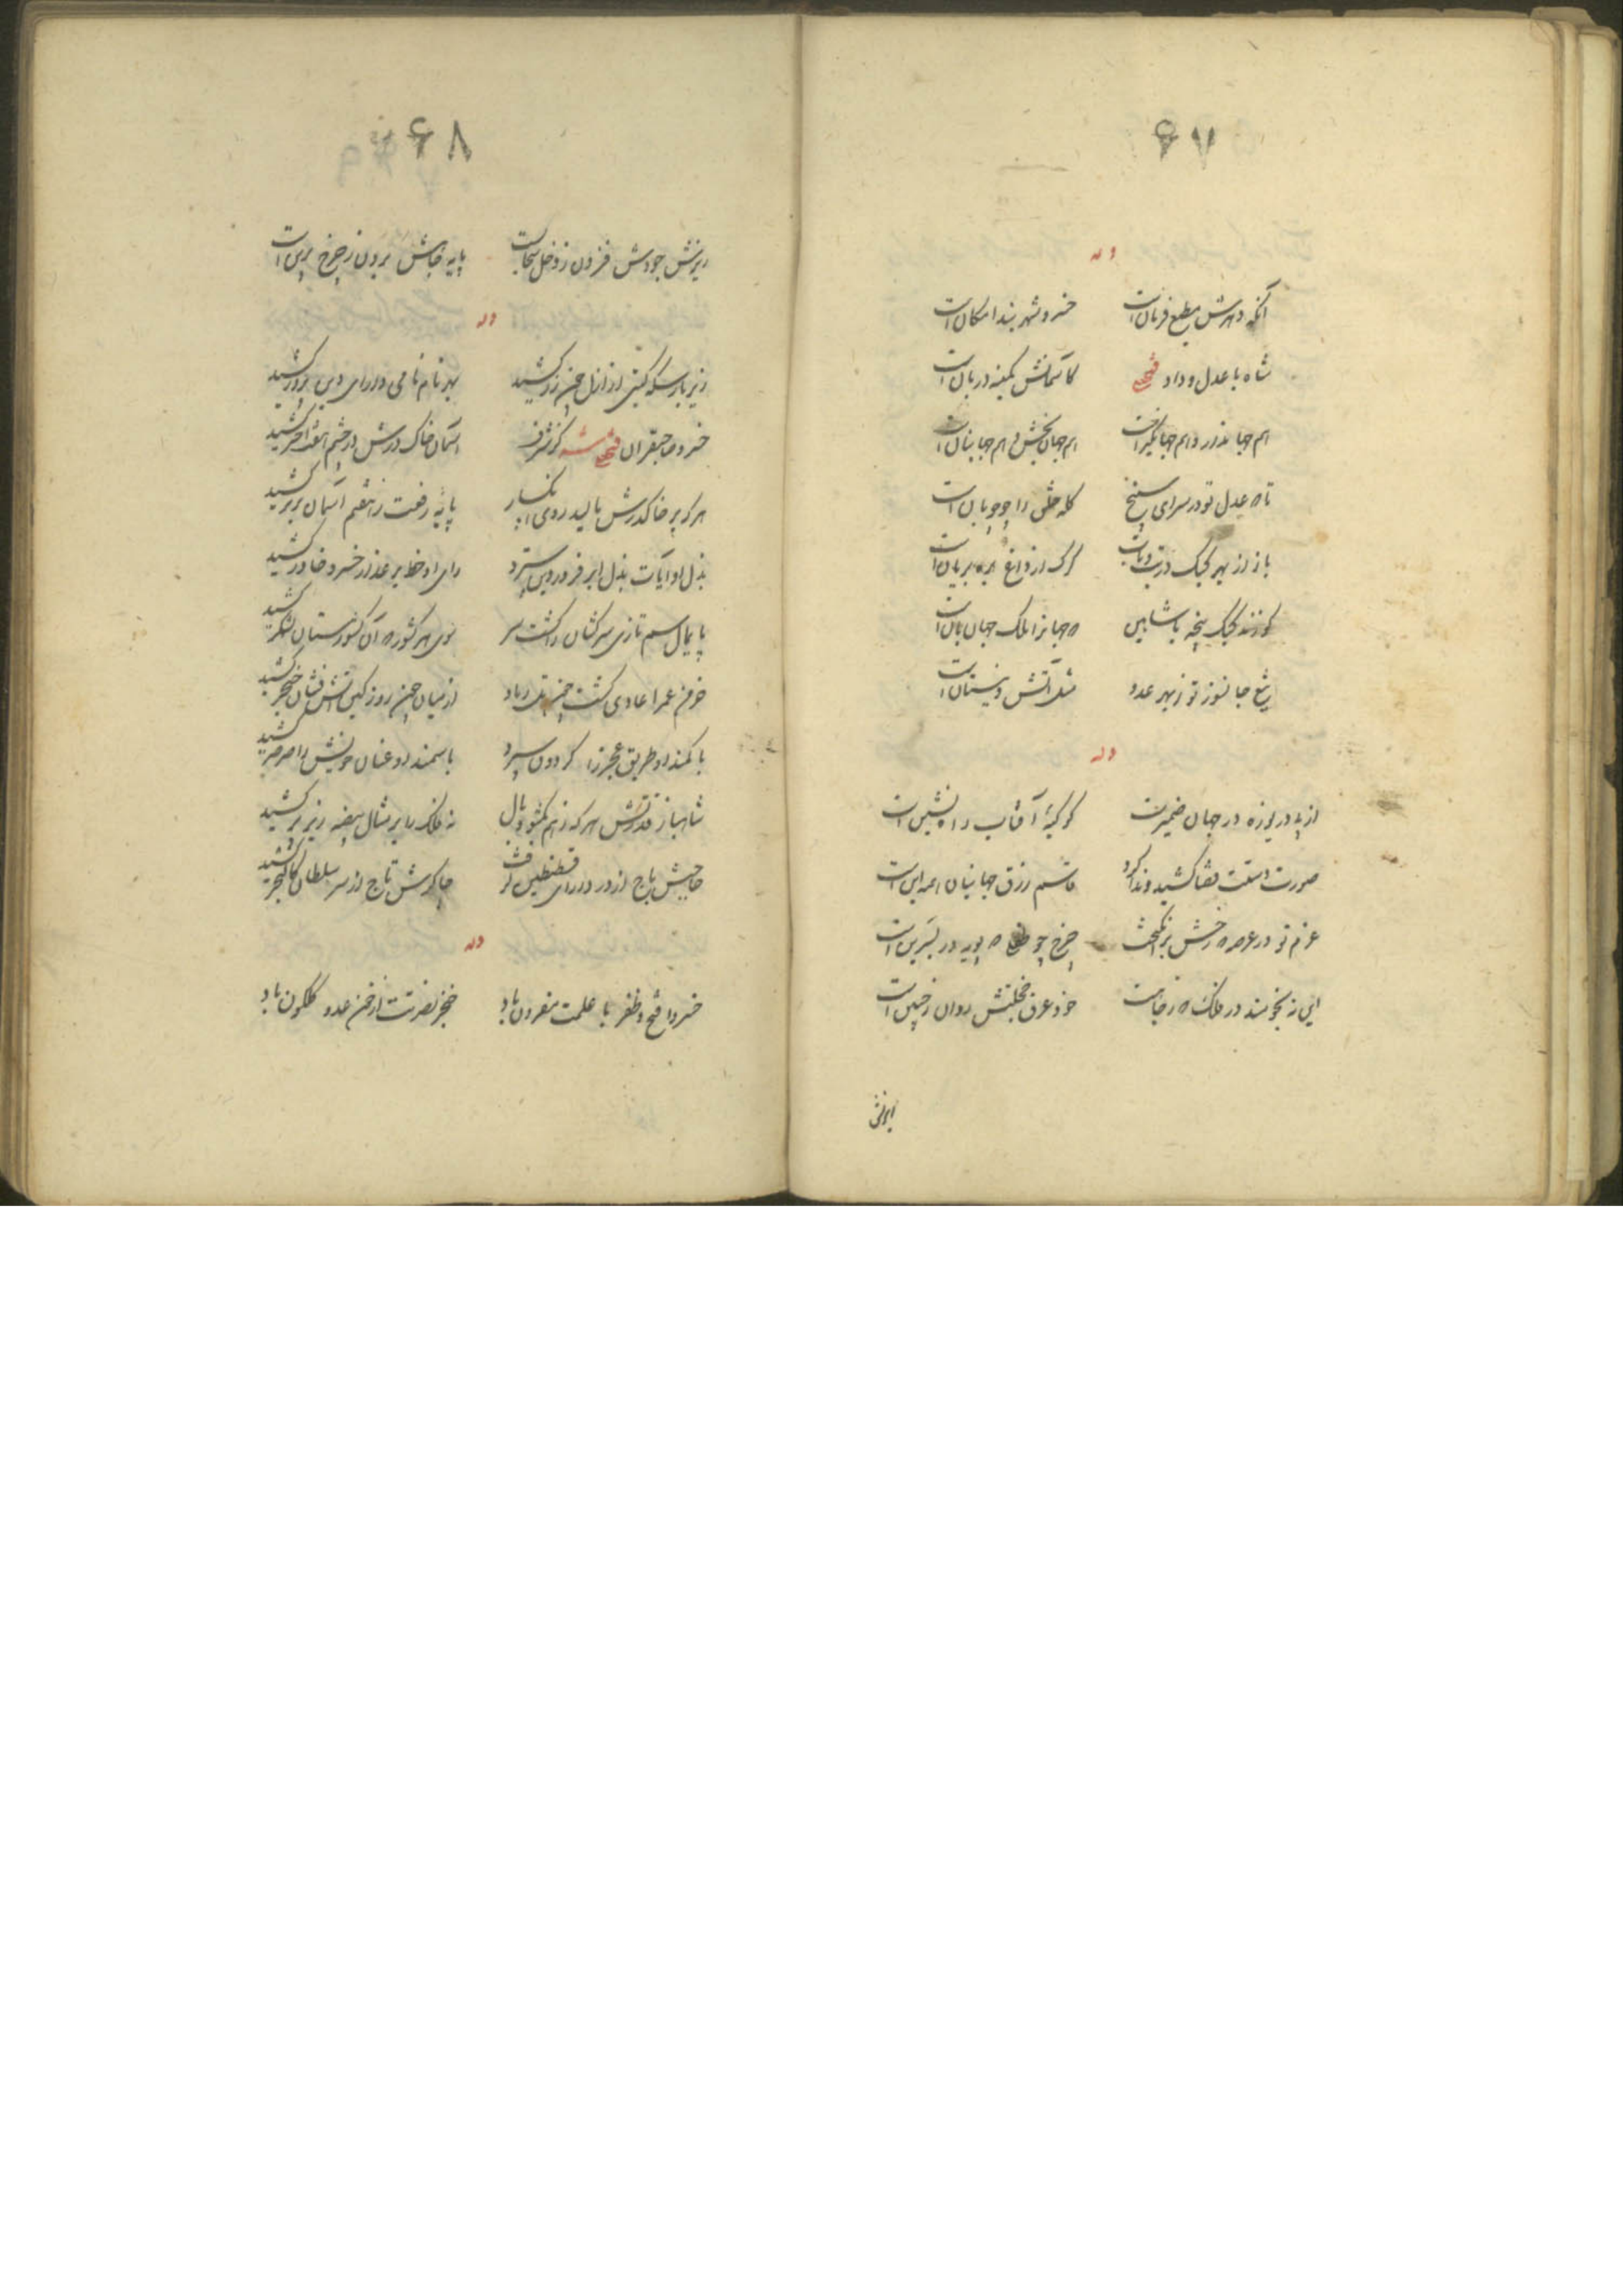 ۶۷
وله
آنکه دهرش مطیع فرمان است خسرو شهربند امکان است
شاه با عدل و داد فتحعلی کآسمانش کمینه دربان است
هم جهاندار و هم جهانگیر است هم جهان بخش و هم جهانبان است
تا عدل تو در سرای سپنج گله خلق را چو چوپان است
باز از بهر کبک در تب و تاب گرگ از داغ بره بریان است
گو زند کبک پنجه با شاهین جهان را ملک جهان بان است
تیغ جانسوز تو ز بهر عدو مثل آتش و نیستان است
وله
از پی دریوزه در جهان ضمیرت کوکبهٔ آفتاب راه نشین است
صورت دستت قضا کشید و ندا کرد قاسم رزق جهانیان همه این است
عزم تو در عرصه رخش برانگیخت چرخ چو پویه در پسرین است
این نه نجومند در فلک خود عرق خجلتش روان ز جبین است
ریزش
۶۸
ریزش جودش فزون ز دخل سحاب است پایه جاهش برون ز چرخ برین است
وله
زیر بار سکه گیتی از ازل چون زر کشید بهر نام نامی دارای دین پرور کشید
خسرو صاحبقران فتحعلی شه کز شرف آسمان خاک درش در چشم هفت اختر کشید
هر که بر خاک درش مالید روی پایهٔ رفعت ز هفتم آسمان برتر کشید
بذل او آیات بذل ابر فروردین سترد رای او خط بر عذار خسرو خاور کشید
پایمال سم تازی سرکشان را گشت سر سوی هر کشور که آن کشورستان لشکر کشید
خرمن عمر اعادی گشت چون تل رماد از میان چون روز کین آتش فشان خنجر کشید
با کمند او طریق عجز را گردون سپرد با سمند او عنان خویش را صرصر کشید
شاهباز قدرتش هر گه ز هم بگشود بال نه فلک را بر مثال بیضه زیر پر کشید
حاجبش باج از در دارای قسطنطین گرفت چاکرش تاج از سر سلطان کالنجر کشید
وله
خسروا فتح و ظفر با علمت مقرون باد خنجر نصرتت از خون عدو گلگون باد